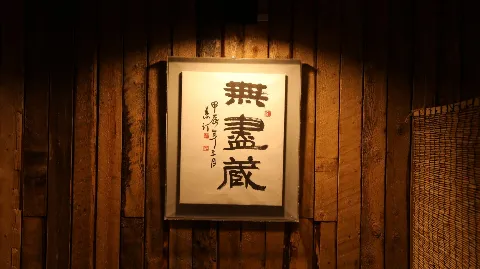 無盡蔵
甲辰年三月